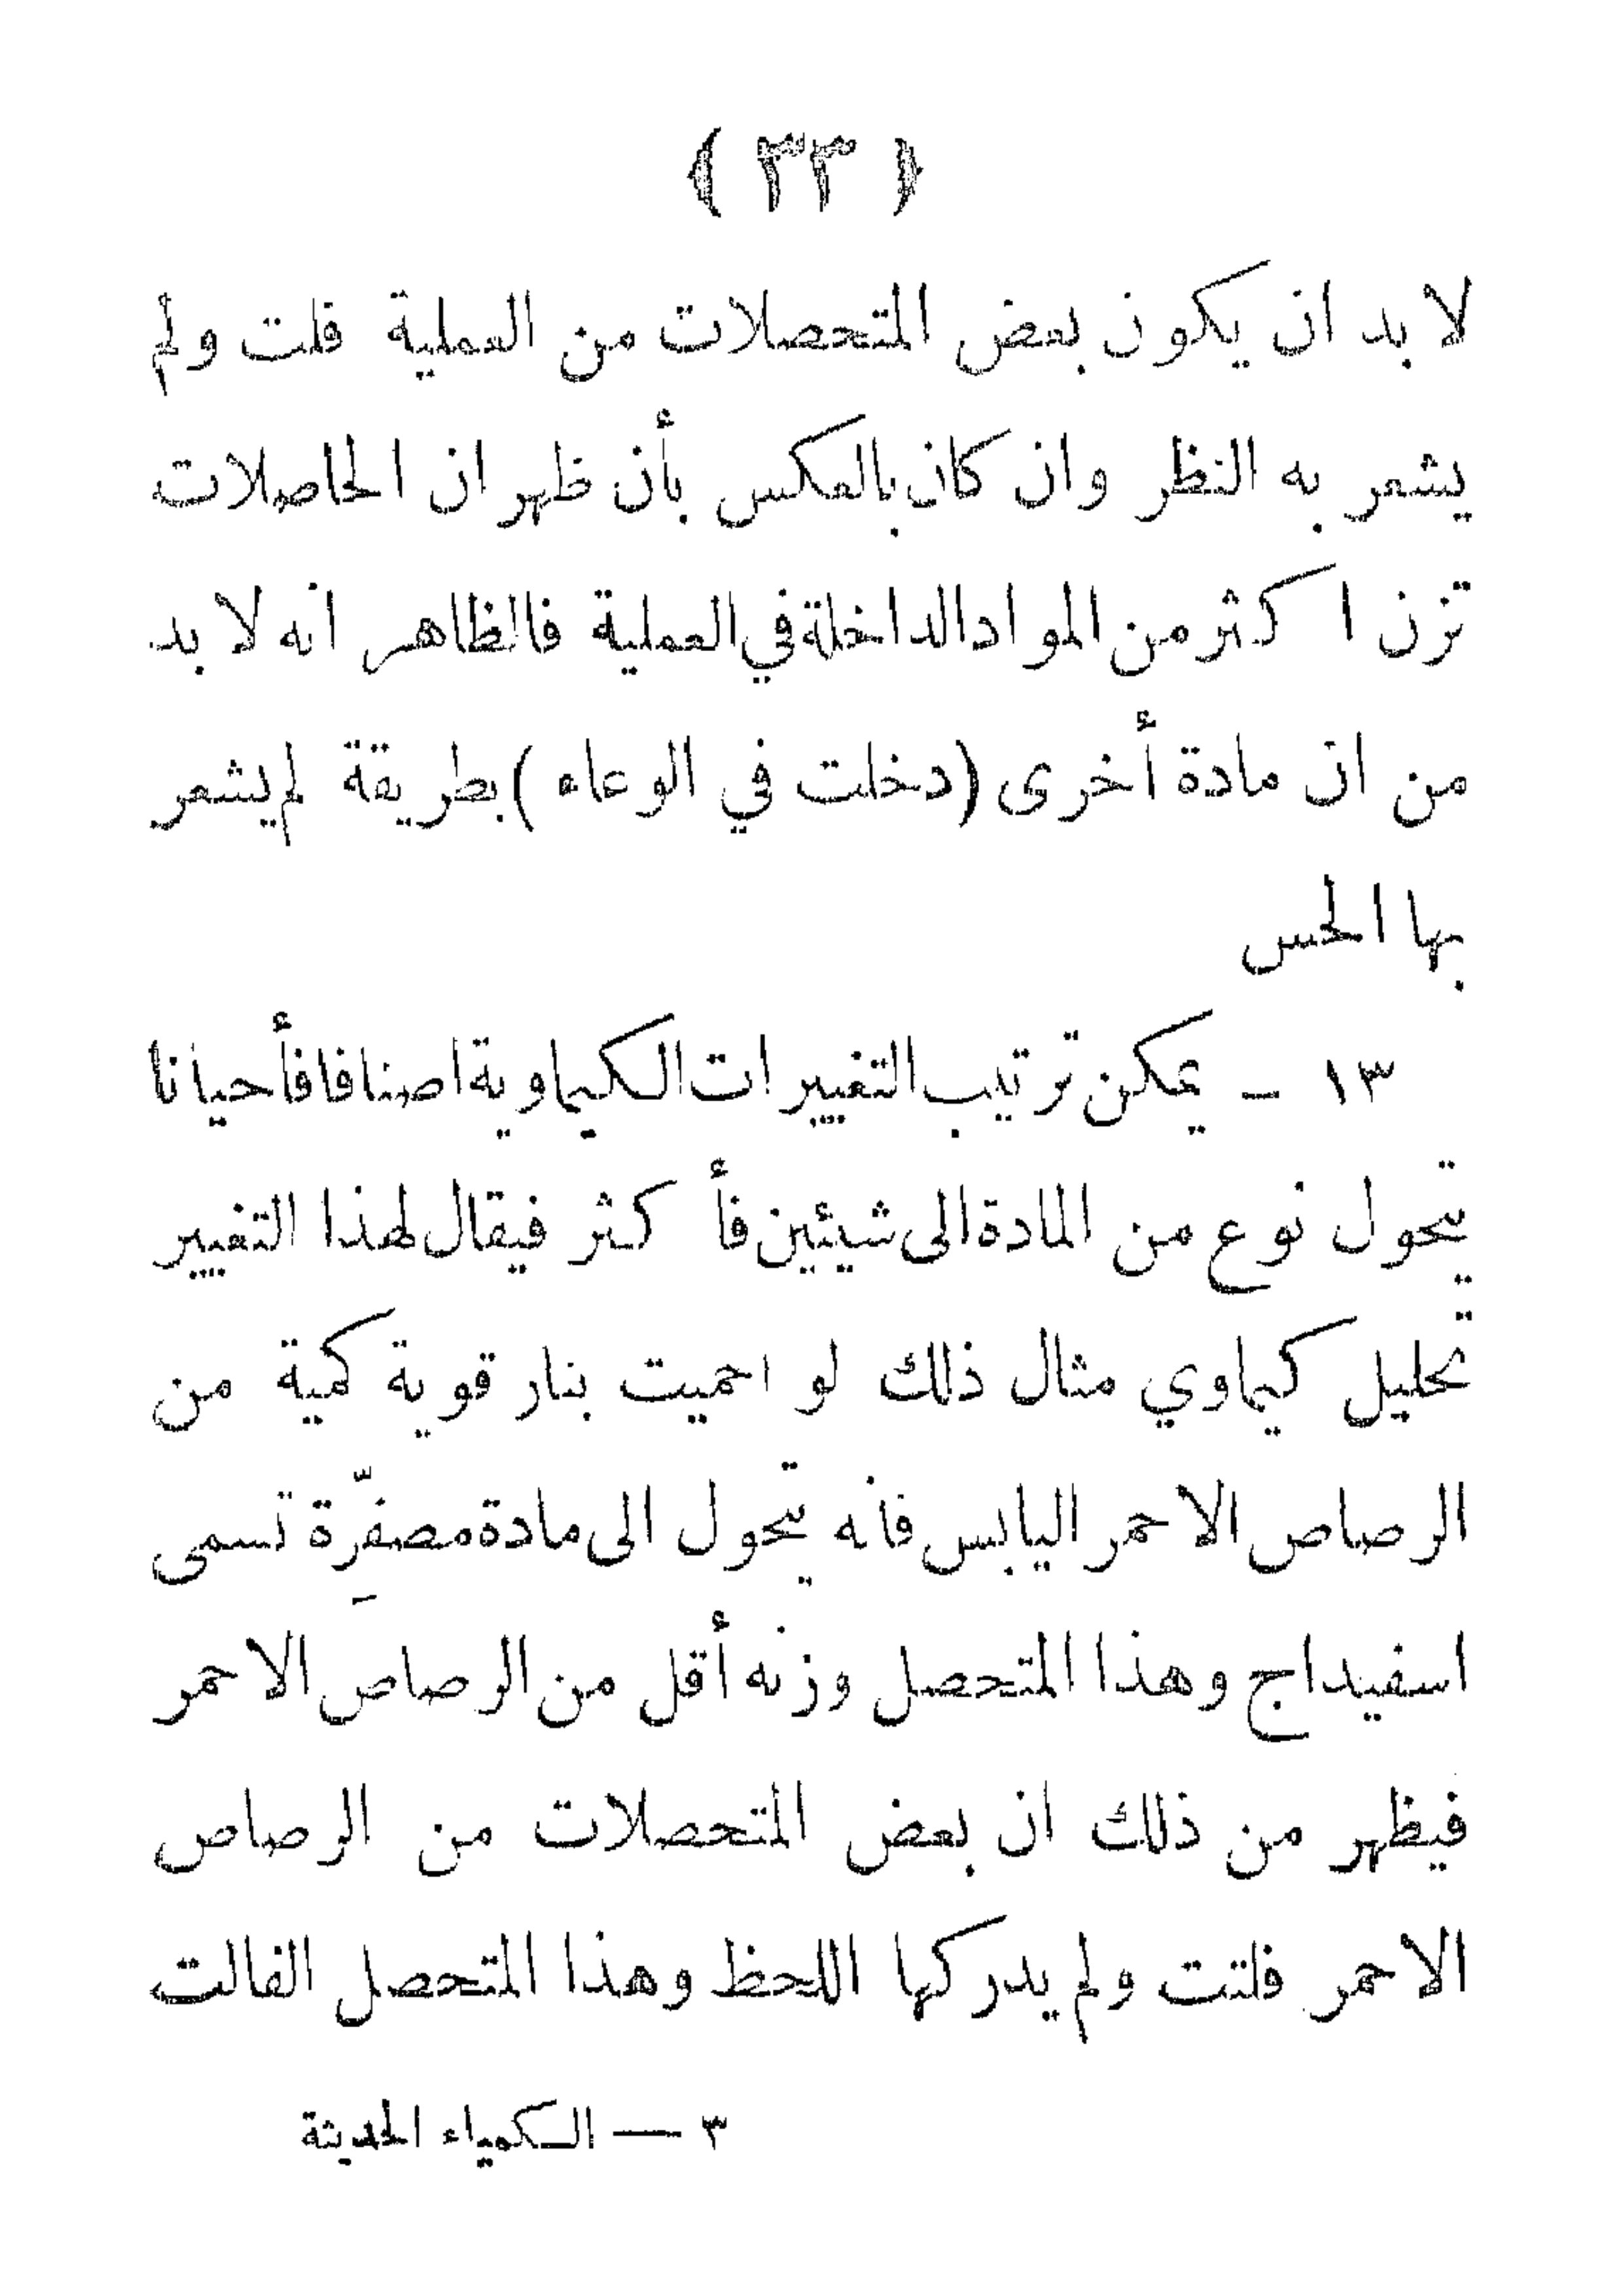 ( ٣٣ )
لا بد ان يكون بعض المتحصلات من العملية فلت ولم
يشعر به النظر وان كان بالعكس بأن ظهر ان الحاصلات
تزن اكثر من المواد الداخلة في العملية فالظاهر انه لا بد
من ان مادة أخرى (دخلت في الوعاء) بطريقة لم يشعر
بها الحس
١٣ – يمكن ترتيب التغييرات الكيماوية اصنافا فأحيانا
يتحول نوع من المادة الى شيئين فأكثر فيقال لهذا التغيير
تحليل كيماوي مثال ذلك لو احميت بنار قوية كمية من
الرصاص الاحمر اليابس فانه يتحول الى مادة مصفرِّة تسمى
اسفيداج وهذا المتحصل وزنه أقل من الرصاص الاحمر
فيظهر من ذلك ان بعض المتحصلات من الرصاص
الاحمر فلتت ولم يدركها اللحظ وهذا المتحصل الفالت
٣ — الكمياء الحديثة